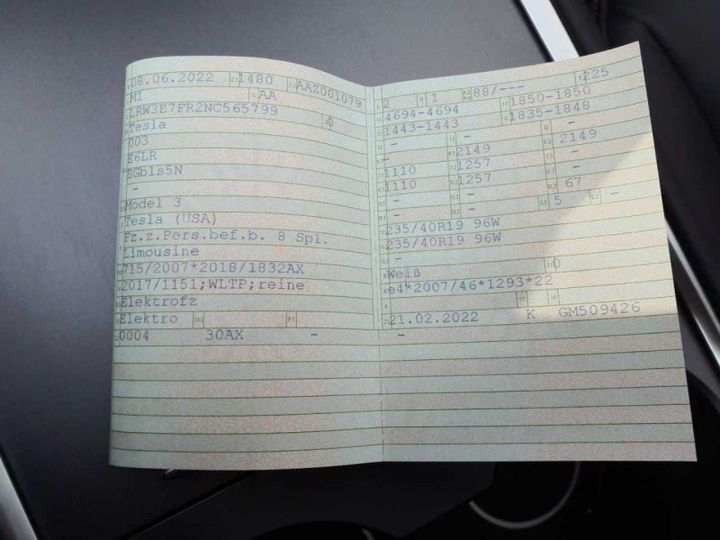 08.06.2022 1480 AAZ001079
M1 AA
LRW3E7FR2NC565799
Tesla
003
E6LR
5N
-
Model 3
Tesla (USA)
Fz.z.Pers.bef.b. 8 Spl.
Limousine
715/2007*2018/1832AX
2017/1151;WLTP;reine
Elektrofz
Elektro
0004 30AX -
2 1 88/--- 225
4694-4694 1850-1850
1443-1443 1835-1848
- - -
- 2149 2149
1110 1257 -
1110 1257 -
- - 67
- - 5 -
235/40R19 96W
235/40R19 96W
-
Weiß 0
e4*2007/46*1293*22
21.02.2022 K GM509426
-